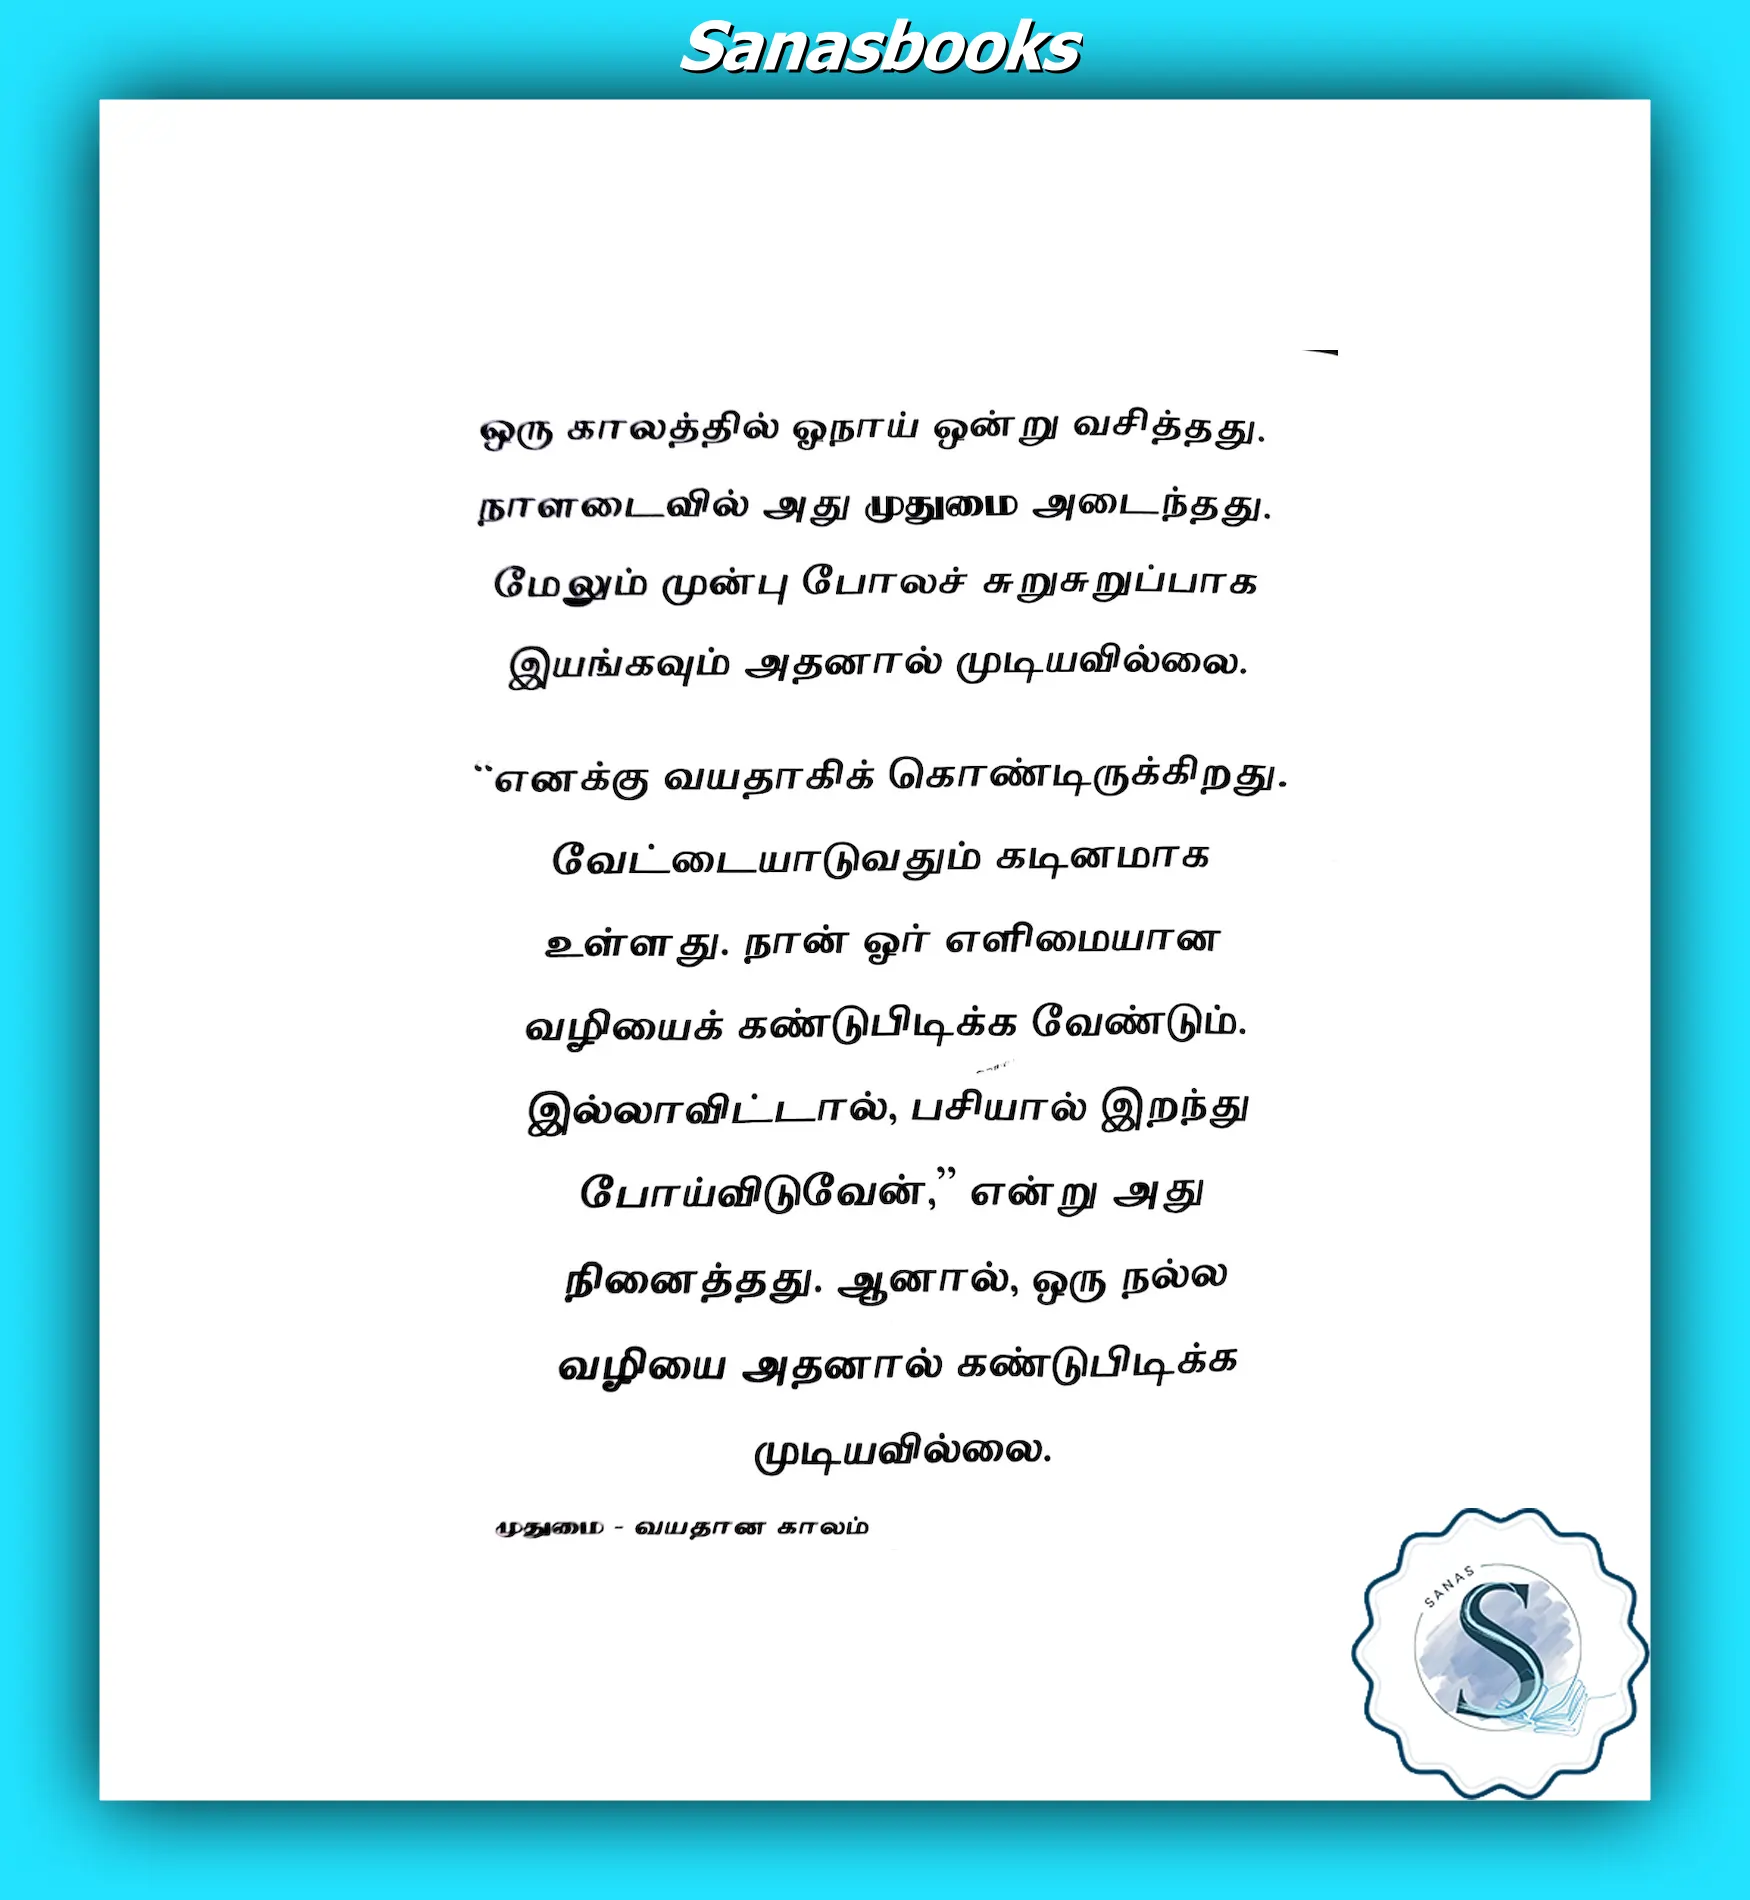 Sanasbooks
ஒரு காலத்தில் ஓநாய் ஒன்று வசித்தது.
நாளடைவில் அது முதுமை அடைந்தது.
மேலும் முன்பு போலச் சுறுசுறுப்பாக
இயங்கவும் அதனால் முடியவில்லை.
“எனக்கு வயதாகிக் கொண்டிருக்கிறது.
வேட்டையாடுவதும் கடினமாக
உள்ளது. நான் ஓர் எளிமையான
வழியைக் கண்டுபிடிக்க வேண்டும்.
இல்லாவிட்டால், பசியால் இறந்து
போய்விடுவேன்,” என்று அது
நினைத்தது. ஆனால், ஒரு நல்ல
வழியை அதனால் கண்டுபிடிக்க
முடியவில்லை.
முதுமை - வயதான காலம்
SANAS
S